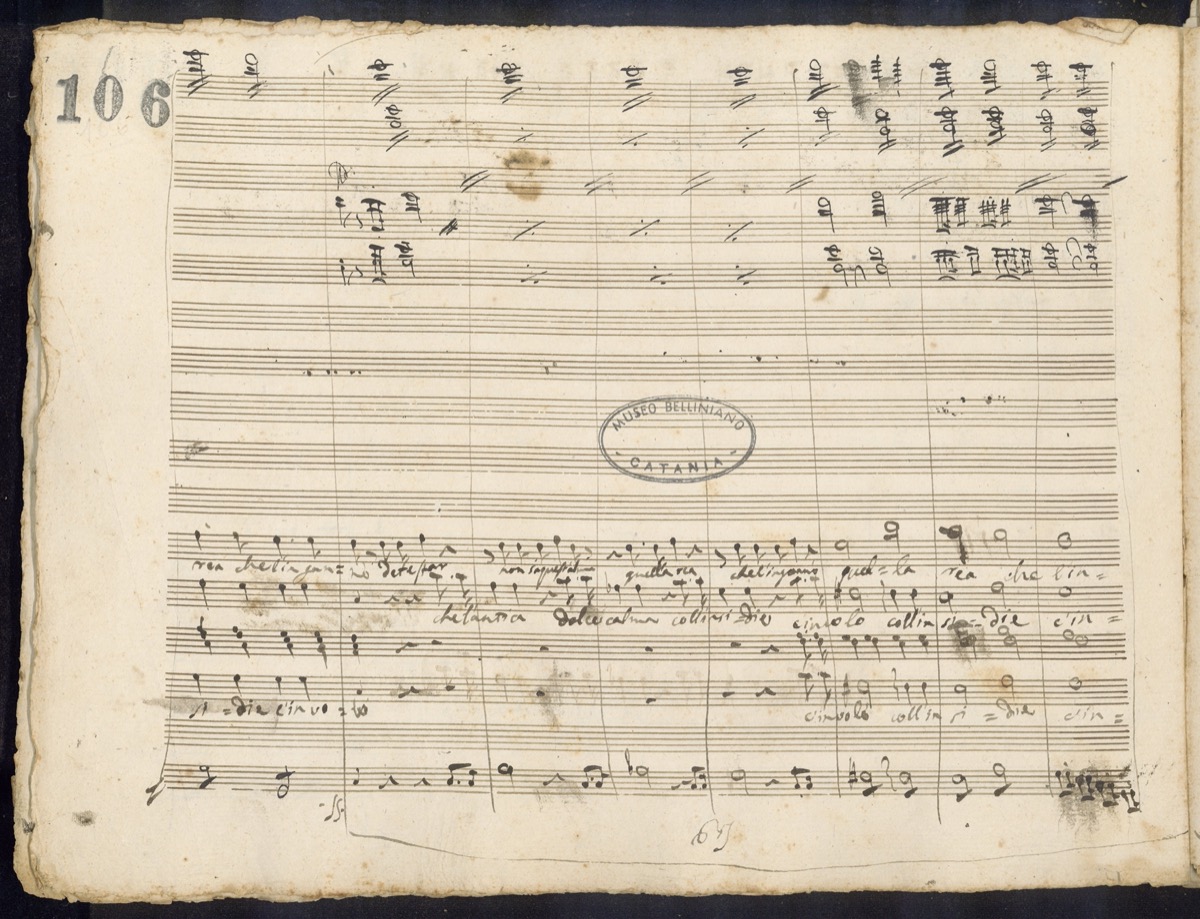 106
MUSEO BELLINIANO
- CATANIA -
rea che l'ingan= no detestar quella rea che l'inganno quel=la rea che l'in=
che l'antica dolce calma coll'insi=die cinvolò coll'insi=die cin=
si=die cinvo=lò cinvolò coll'insi=die cin=